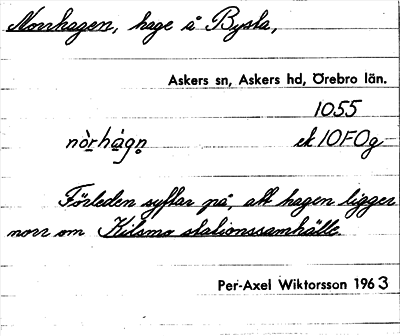 Norrhagen, hage å Bysta,
Askers sn, Askers hd, Örebro län.
1055
nòrhágn̥ ek 10F0g
Förleden syftar på, att hagen ligger
norr om Kilsmo stationssamhälle.
Per-Axel Wiktorsson 1963